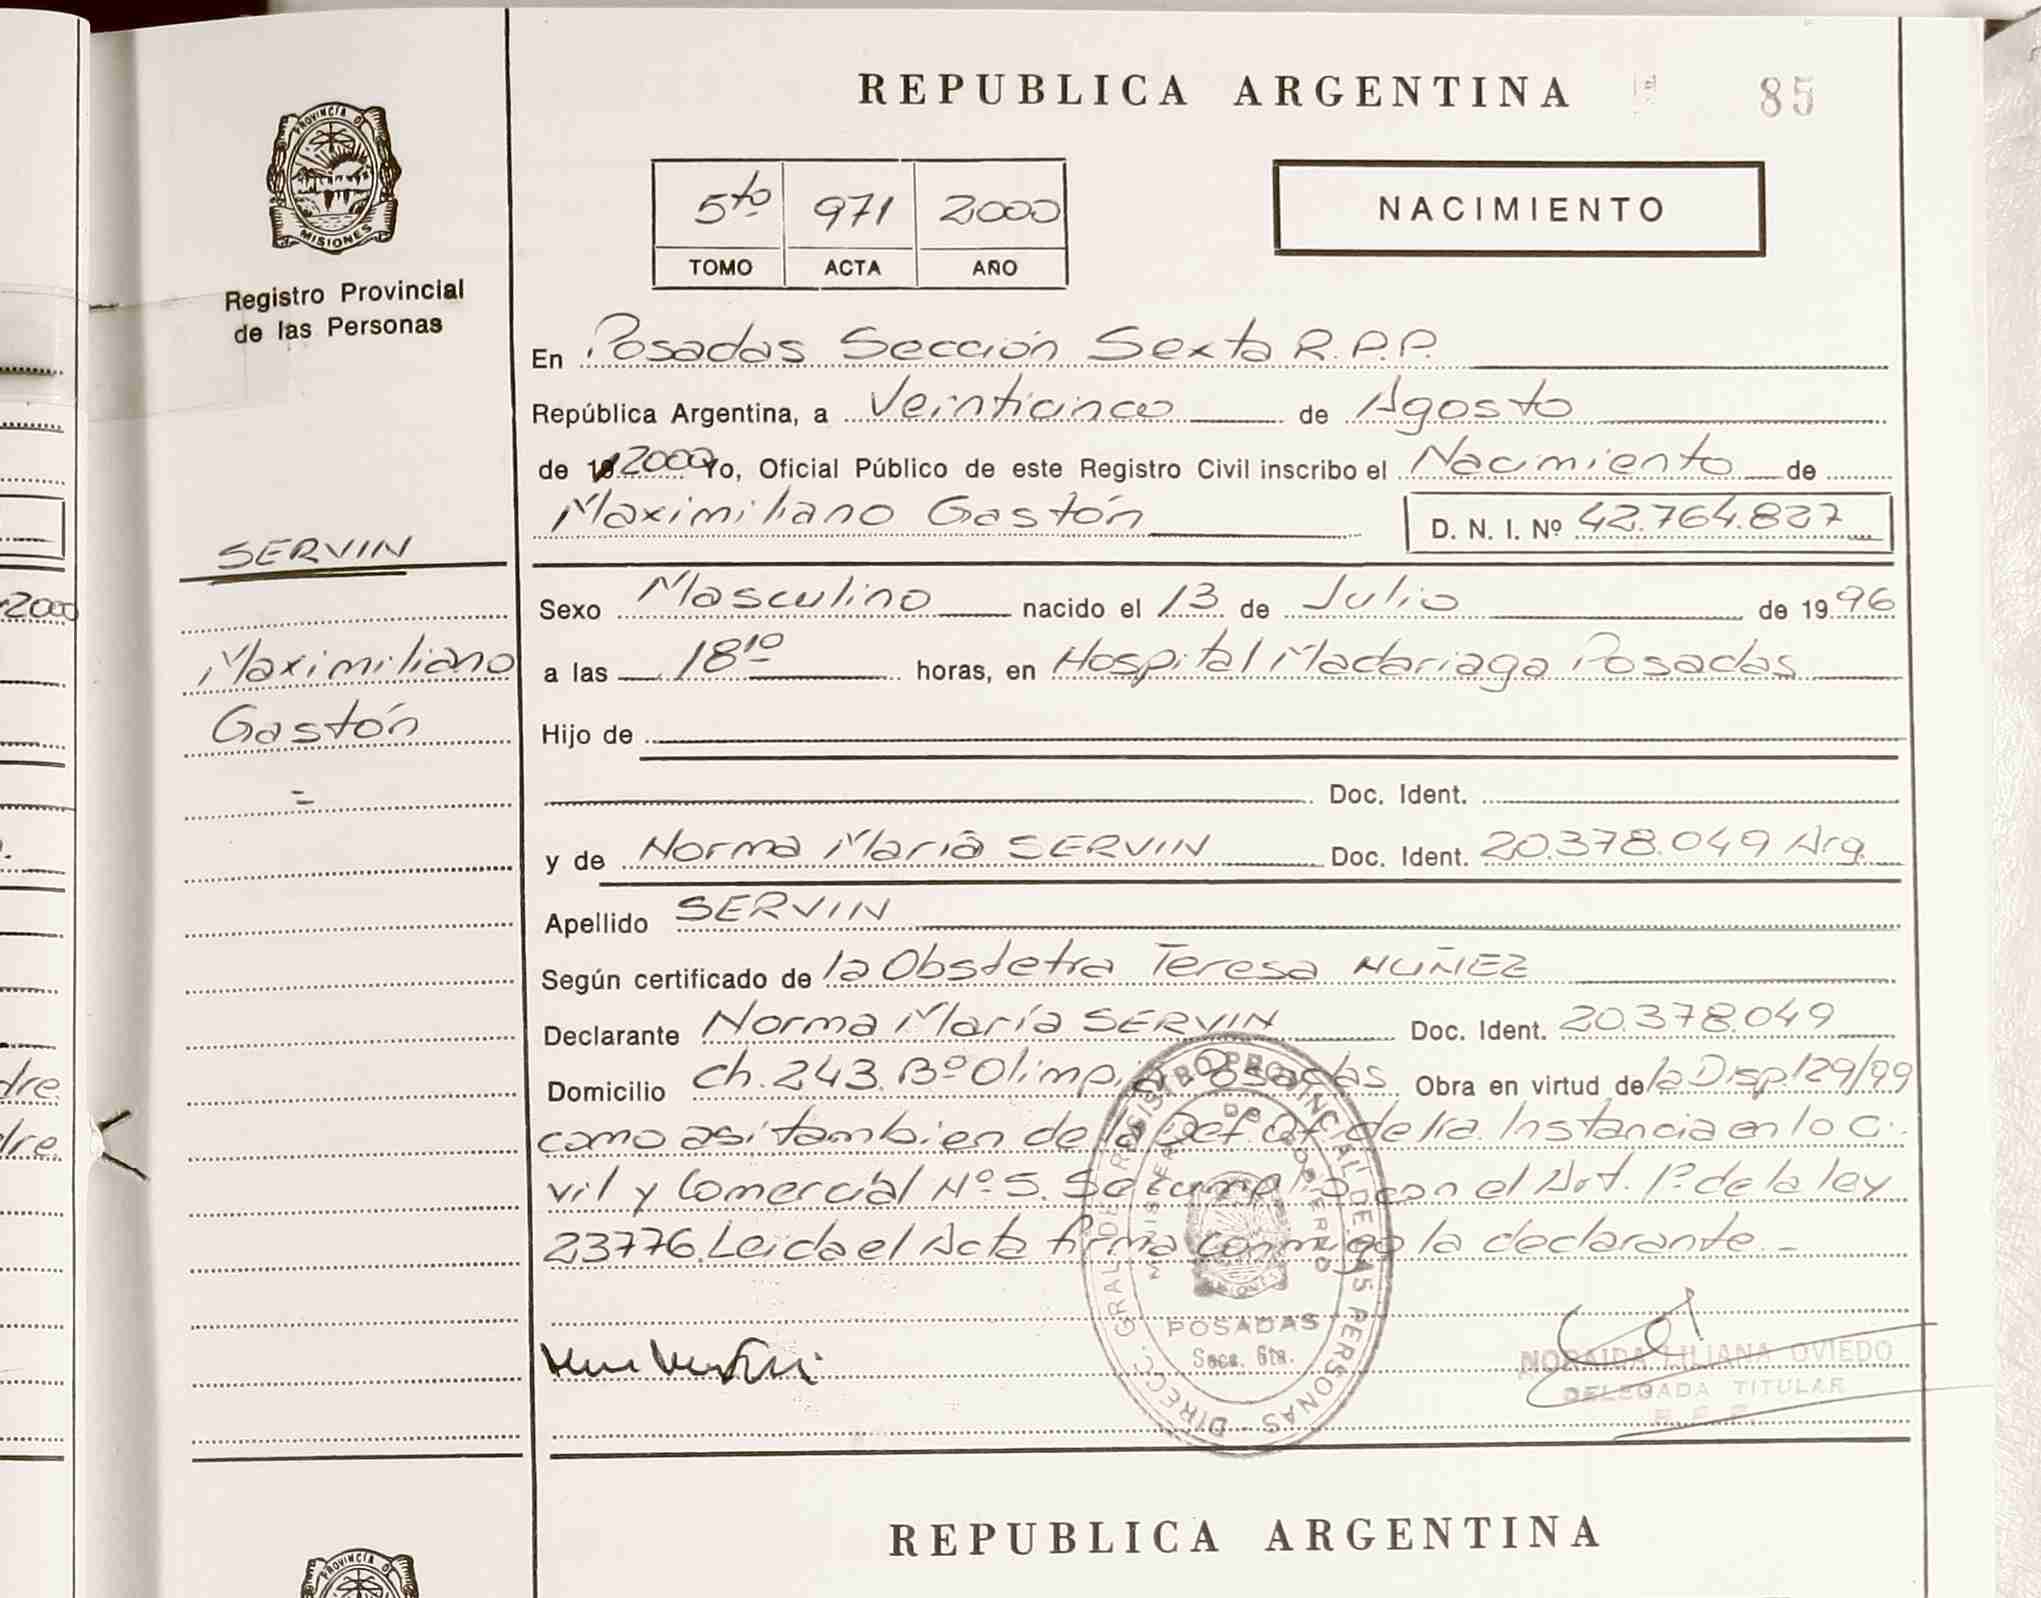 REPUBLICA ARGENTINA
85
PROVINCIA DE
MISIONES
Registro Provincial
de las Personas
5to 971 2000
TOMO ACTA AÑO
NACIMIENTO
En Posadas Sección Sexta R.P.P.
República Argentina, a Veinticinco de Agosto
de 19 2000 Yo, Oficial Público de este Registro Civil inscribo el Nacimiento de
Maximiliano Gastón D. N. I. Nº 42.764.827
SERVIN
Maximiliano
Gastón
=
Sexo Masculino nacido el 13 de Julio de 19 96
a las 18 10 horas, en Hospital Madariaga Posadas
Hijo de
Doc. Ident.
y de Norma María SERVIN Doc. Ident. 20.378.049 Arg.
Apellido SERVIN
Según certificado de la Obstetra Teresa NUÑEZ
Declarante Norma María SERVIN Doc. Ident. 20.378.049
Domicilio ch. 243. Bº Olimpia Posadas Obra en virtud de la Disp. 129/99
como asi tambien de la Def. Of. de 1ra. Instancia en lo Ci-
vil y Comercial Nº 5. Se cumplió con el Art. 1º de la ley
23776. Leida el Acta firma conmigo la declarante.-
DIRECC. GRAL DE REGISTRO PROVINCIAL DE LAS PERSONAS
MINISTERIO DE GOBIERNO
MISIONES
POSADAS
Secc. 6ta.
NORAIDA LILIANA OVIEDO
DELEGADA TITULAR
2000
dre
dre.
REPUBLICA ARGENTINA
PROVINCIA D